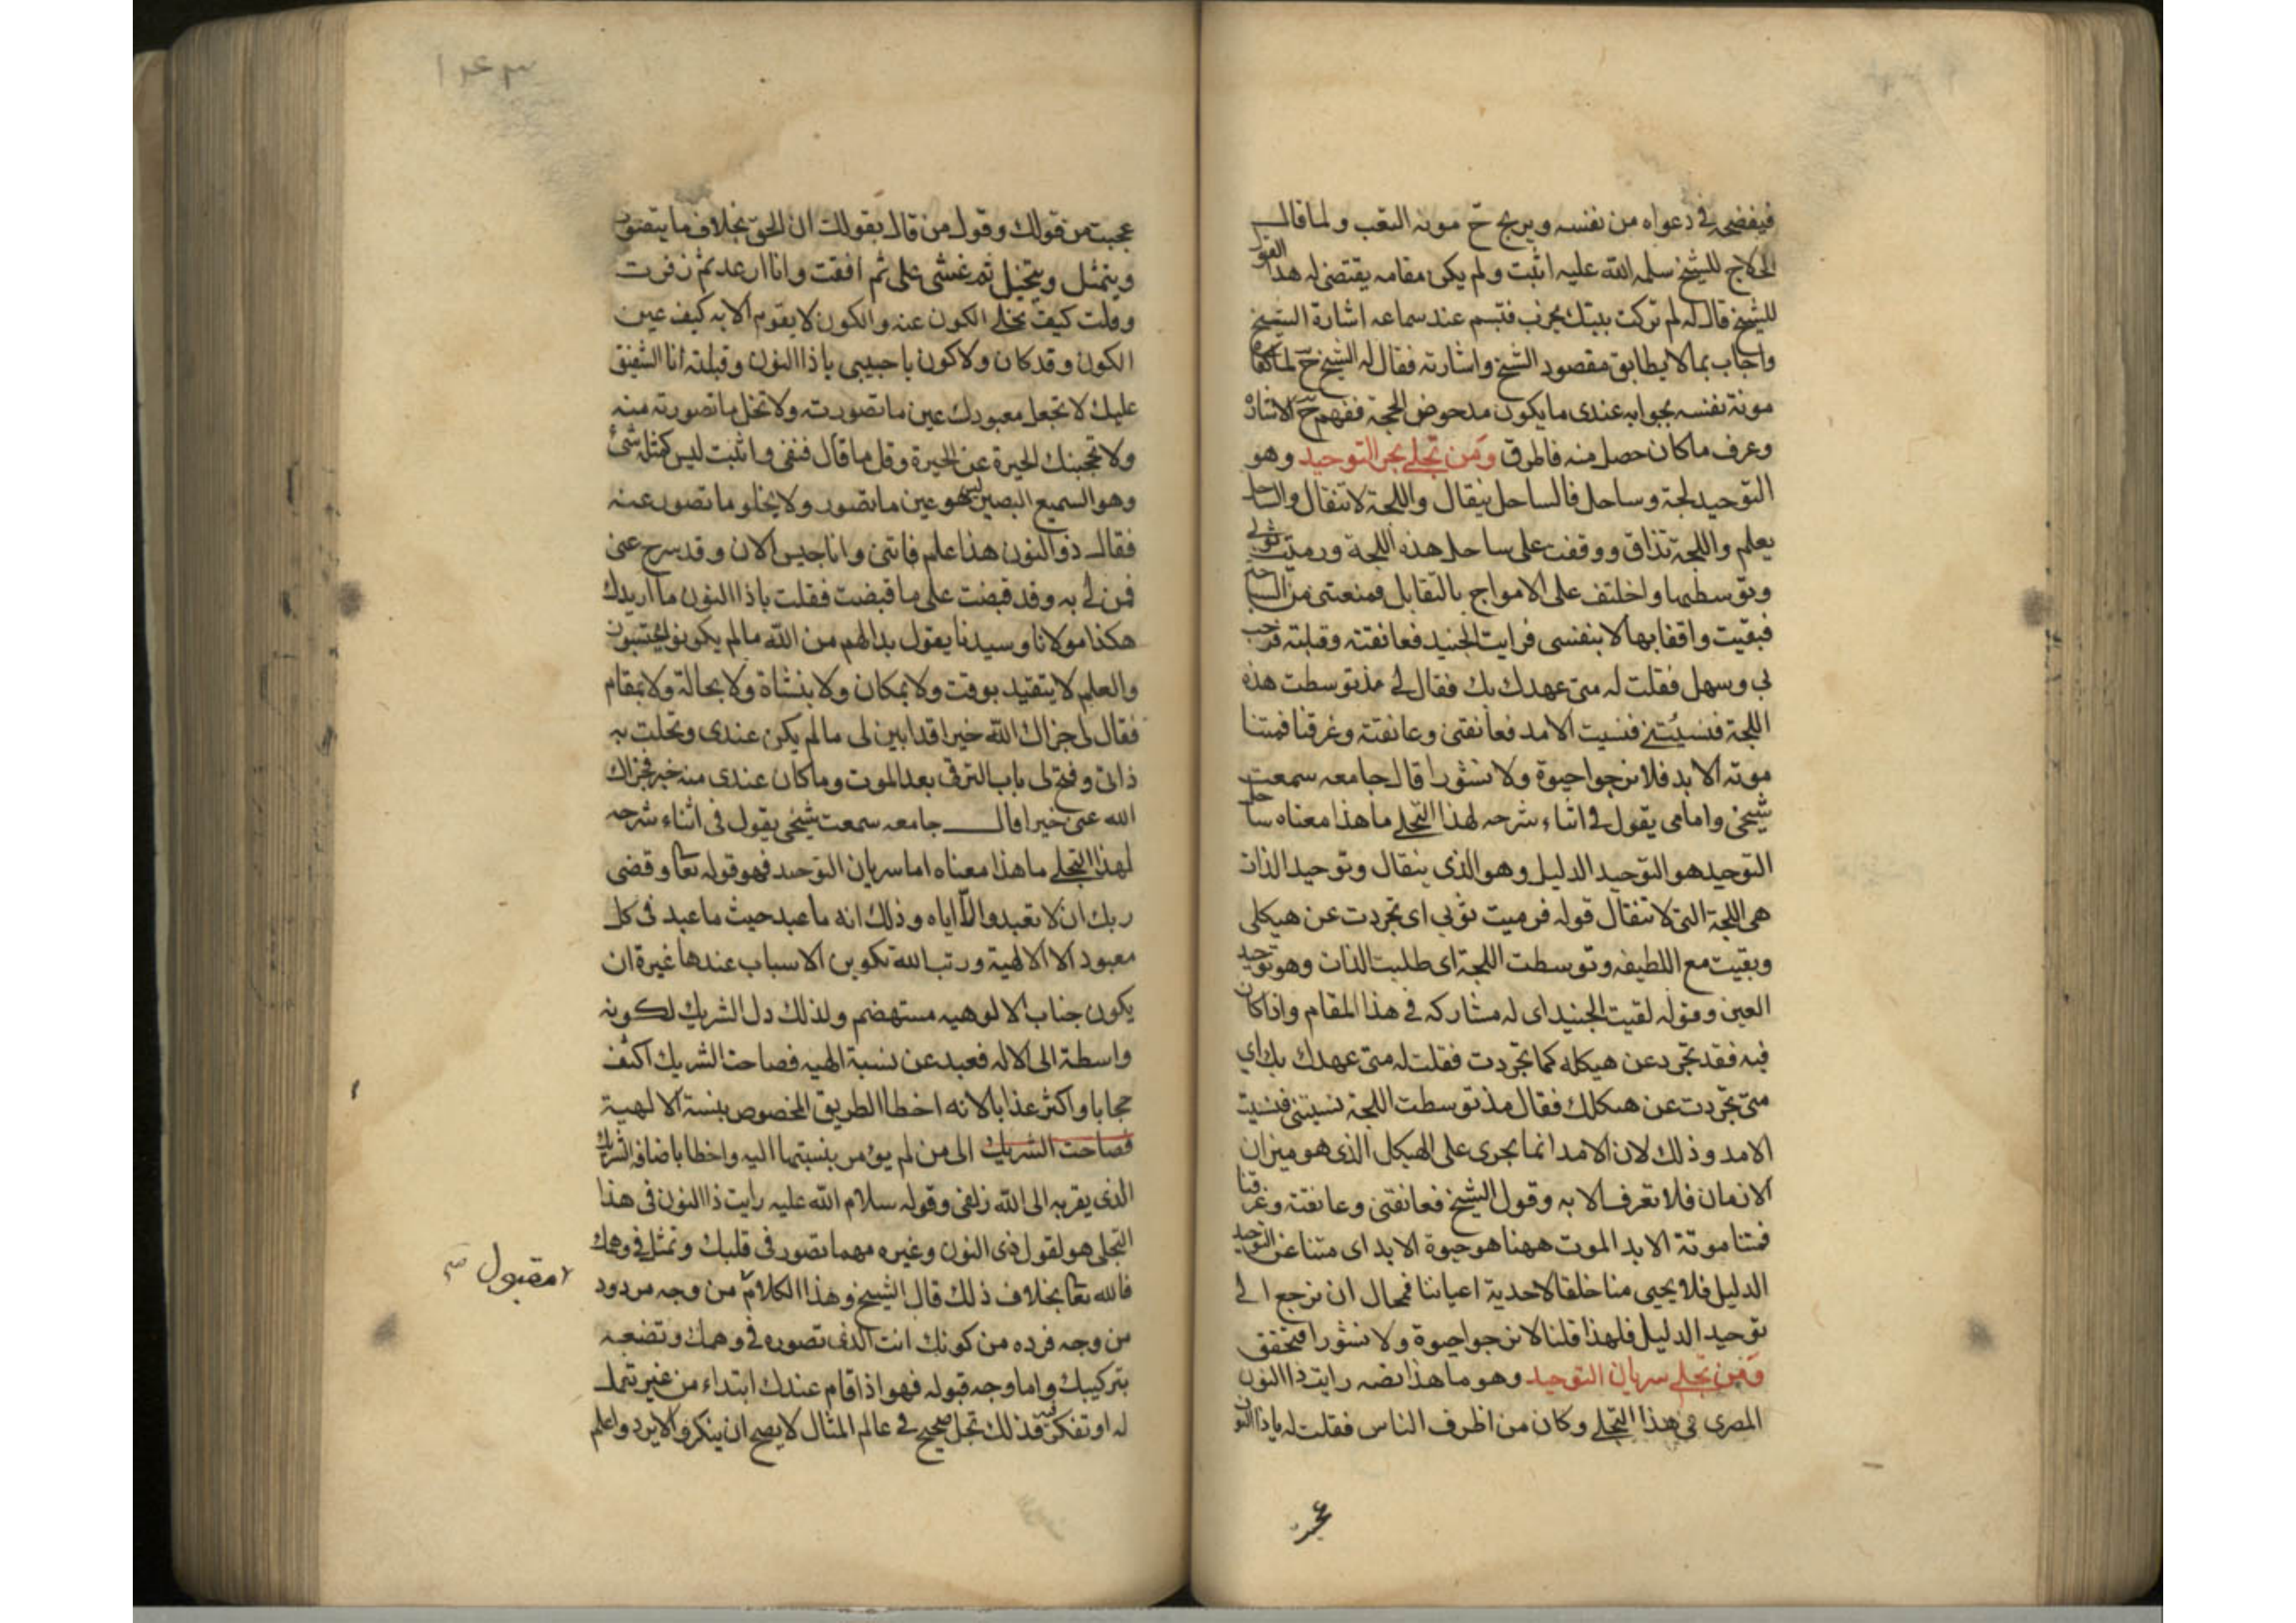 فيفضى فى دعواه من نفسه ويريح ح مونه التعب ولما قال
الحلاج للشيخ سلمه الله عليه اثبت ولم يكن مقامه يقتضى له هذا القول
للشيخ قال له لم تركت بيتك يخرب فتبسم عند سماعه اشارة الشيخ
واجاب بما لا يطابق مقصود الشيخ واشارته فقال له الشيخ ح لما
مونة نفسه بجوابه عندى ما يكون مدحوض الحجة ففهم ح الاشارة
وعرف ما كان حصل منه فاطرق ومن تجلى بحر التوحيد وهو
التوحيد لجة وساحل فالساحل ينقال واللجة لا تنقال والساحل
يعلم واللجة تذاق ووقفت على ساحل هذه اللجة ورميت ثوبى
وتوسطتها واختلف على الامواج بالتقابل فمنعتنى من السباحة
فبقيت واقفا بها لا بنفسى فرايت الجنيد فعانقته وقبلته فرحب
بى وسهل فقلت له متى عهدك بك فقال لى مذ توسطت هذه
اللجة فنسيتنى فنسيت الامد فعانقنى وعانقته وغرقنا فمتنا
موته الابد فلا نرجوا حيوة ولا نشورا قال جامعه سمعت
شيخى وامامى يقول فى اثناء شرحه لهذا التجلى ما هذا معناه ساحل
التوحيد هو التوحيد الدليل وهو الذى ينقال وتوحيد الذات
هى اللجة التى لا تنقال قوله فرميت ثوبى اى تجردت عن هيكلى
وبقيت مع اللطيفه وتوسطت اللجة اى طلبت الذات وهو توحيد
العين وقوله لقيت الجنيد اى له مشاركه فى هذا المقام واذا كان
فيه فقد تجرد عن هيكله كما تجردت فقلت له متى عهدك بك اى
متى تجردت عن هيكلك فقال مذ توسطت اللجة نسيتنى فنسيت
الامد وذلك لان الامد انما يجرى على الهيكل الذى هو ميزان
الازمان فلا تعرف الا به وقول الشيخ فعانقنى وعانقته وغرقنا
فمتنا موتة الابد الموت ههنا هو حيوة الابد اى متنا عن التوحيد
الدليل فلا يحيى منا خلقا لاحدية اعياننا فمحال ان نرجع الى
توحيد الدليل فلهذا قلنا لا نرجوا حيوة ولا نشورا فتحقق
ومن تجلى سريان التوحيد وهو ما هذا نصه رايت ذا النون
المصرى فى هذا التجلى وكان من اظرف الناس فقلت له يا ذا النون
عجبت
١٤٣
عجبت من قولك وقول من قال بقولك ان الحق بخلاف ما يتصور
ويتمثل ويتخيل ثم غشى على ثم افقت وانا ارعد ثم زفرت
وقلت كيف يخلى الكون عنه والكون لا يقوم الا به كيف عين
الكون وقد كان ولا كون يا حبيبى يا ذا النون وقبلته انا الشفيق
عليك لا تجعل معبودك عين ما تصورته ولا تخل ما تصورته منه
ولا تحجبنك الحيرة عن الحيرة وقل ما قال فنفى واثبت ليس كمثله شئ
وهو السميع البصير ليس هو عين ما تصور ولا يخلو ما تصور عنه
فقال ذو النون هذا علم فاتنى وانا حبيس الان وقد سرح عنى
فمن لى به وقد قبضت على ما قبضت فقلت يا ذا النون ما اريدك
هكذا مولانا وسيدنا يقول بدا لهم من الله ما لم يكونوا يحتسبون
والعلم لا يتقيد بوقت ولا بمكان ولا بنشاة ولا بحالة ولا بمقام
فقال لى جزاك الله خيرا قد ابين لى ما لم يكن عندى وتحلت به
ذاتى وفتح لى باب الترقى بعد الموت وما كان عندى منه خبر فجزاك
الله عنى خيرا قال جامعه سمعت شيخى يقول فى اثناء شرحه
لهذا التجلى ما هذا معناه اما سريان التوحيد فهو قوله تعا وقضى
ربك ان لا تعبدوا الا اياه وذلك انه ما عبد حيث ما عبد فى كل
معبود الا الالهية ورتب الله تكوين الاسباب عندها غيرة ان
يكون جناب الالوهيه مستهضم ولذلك دل الشريك لكونه
واسطة الى الاله فعبد عن نسبة الهيه فصاحت الشريك اكثف
حجابا واكثر عذابا لانه اخطا الطريق المخصوص بنسبة الالهية
فصاحت الشريك الى من لم يومر بنسبتها اليه واخطا باضافه الشريك
الذى يقربه الى الله زلفى وقوله سلام الله عليه رايت ذا النون فى هذا
التجلى هو لقول ذى النون وغيره مهما تصور فى قلبك وتمثل فى وهمك
فالله تعا بخلاف ذلك قال الشيخ وهذا الكلام من وجه مردود
مقبول صح
من وجه فرده من كونك انت الذى تصوره فى وهمك وتضعه
بتركيبك واما وجه قبوله فهو اذا قام عندك ابتداء من غير تعمل
له او تفكر فيه فذلك تجل صحيح فى عالم المثال لا يصح ان ينكر ولا يرد واعلم